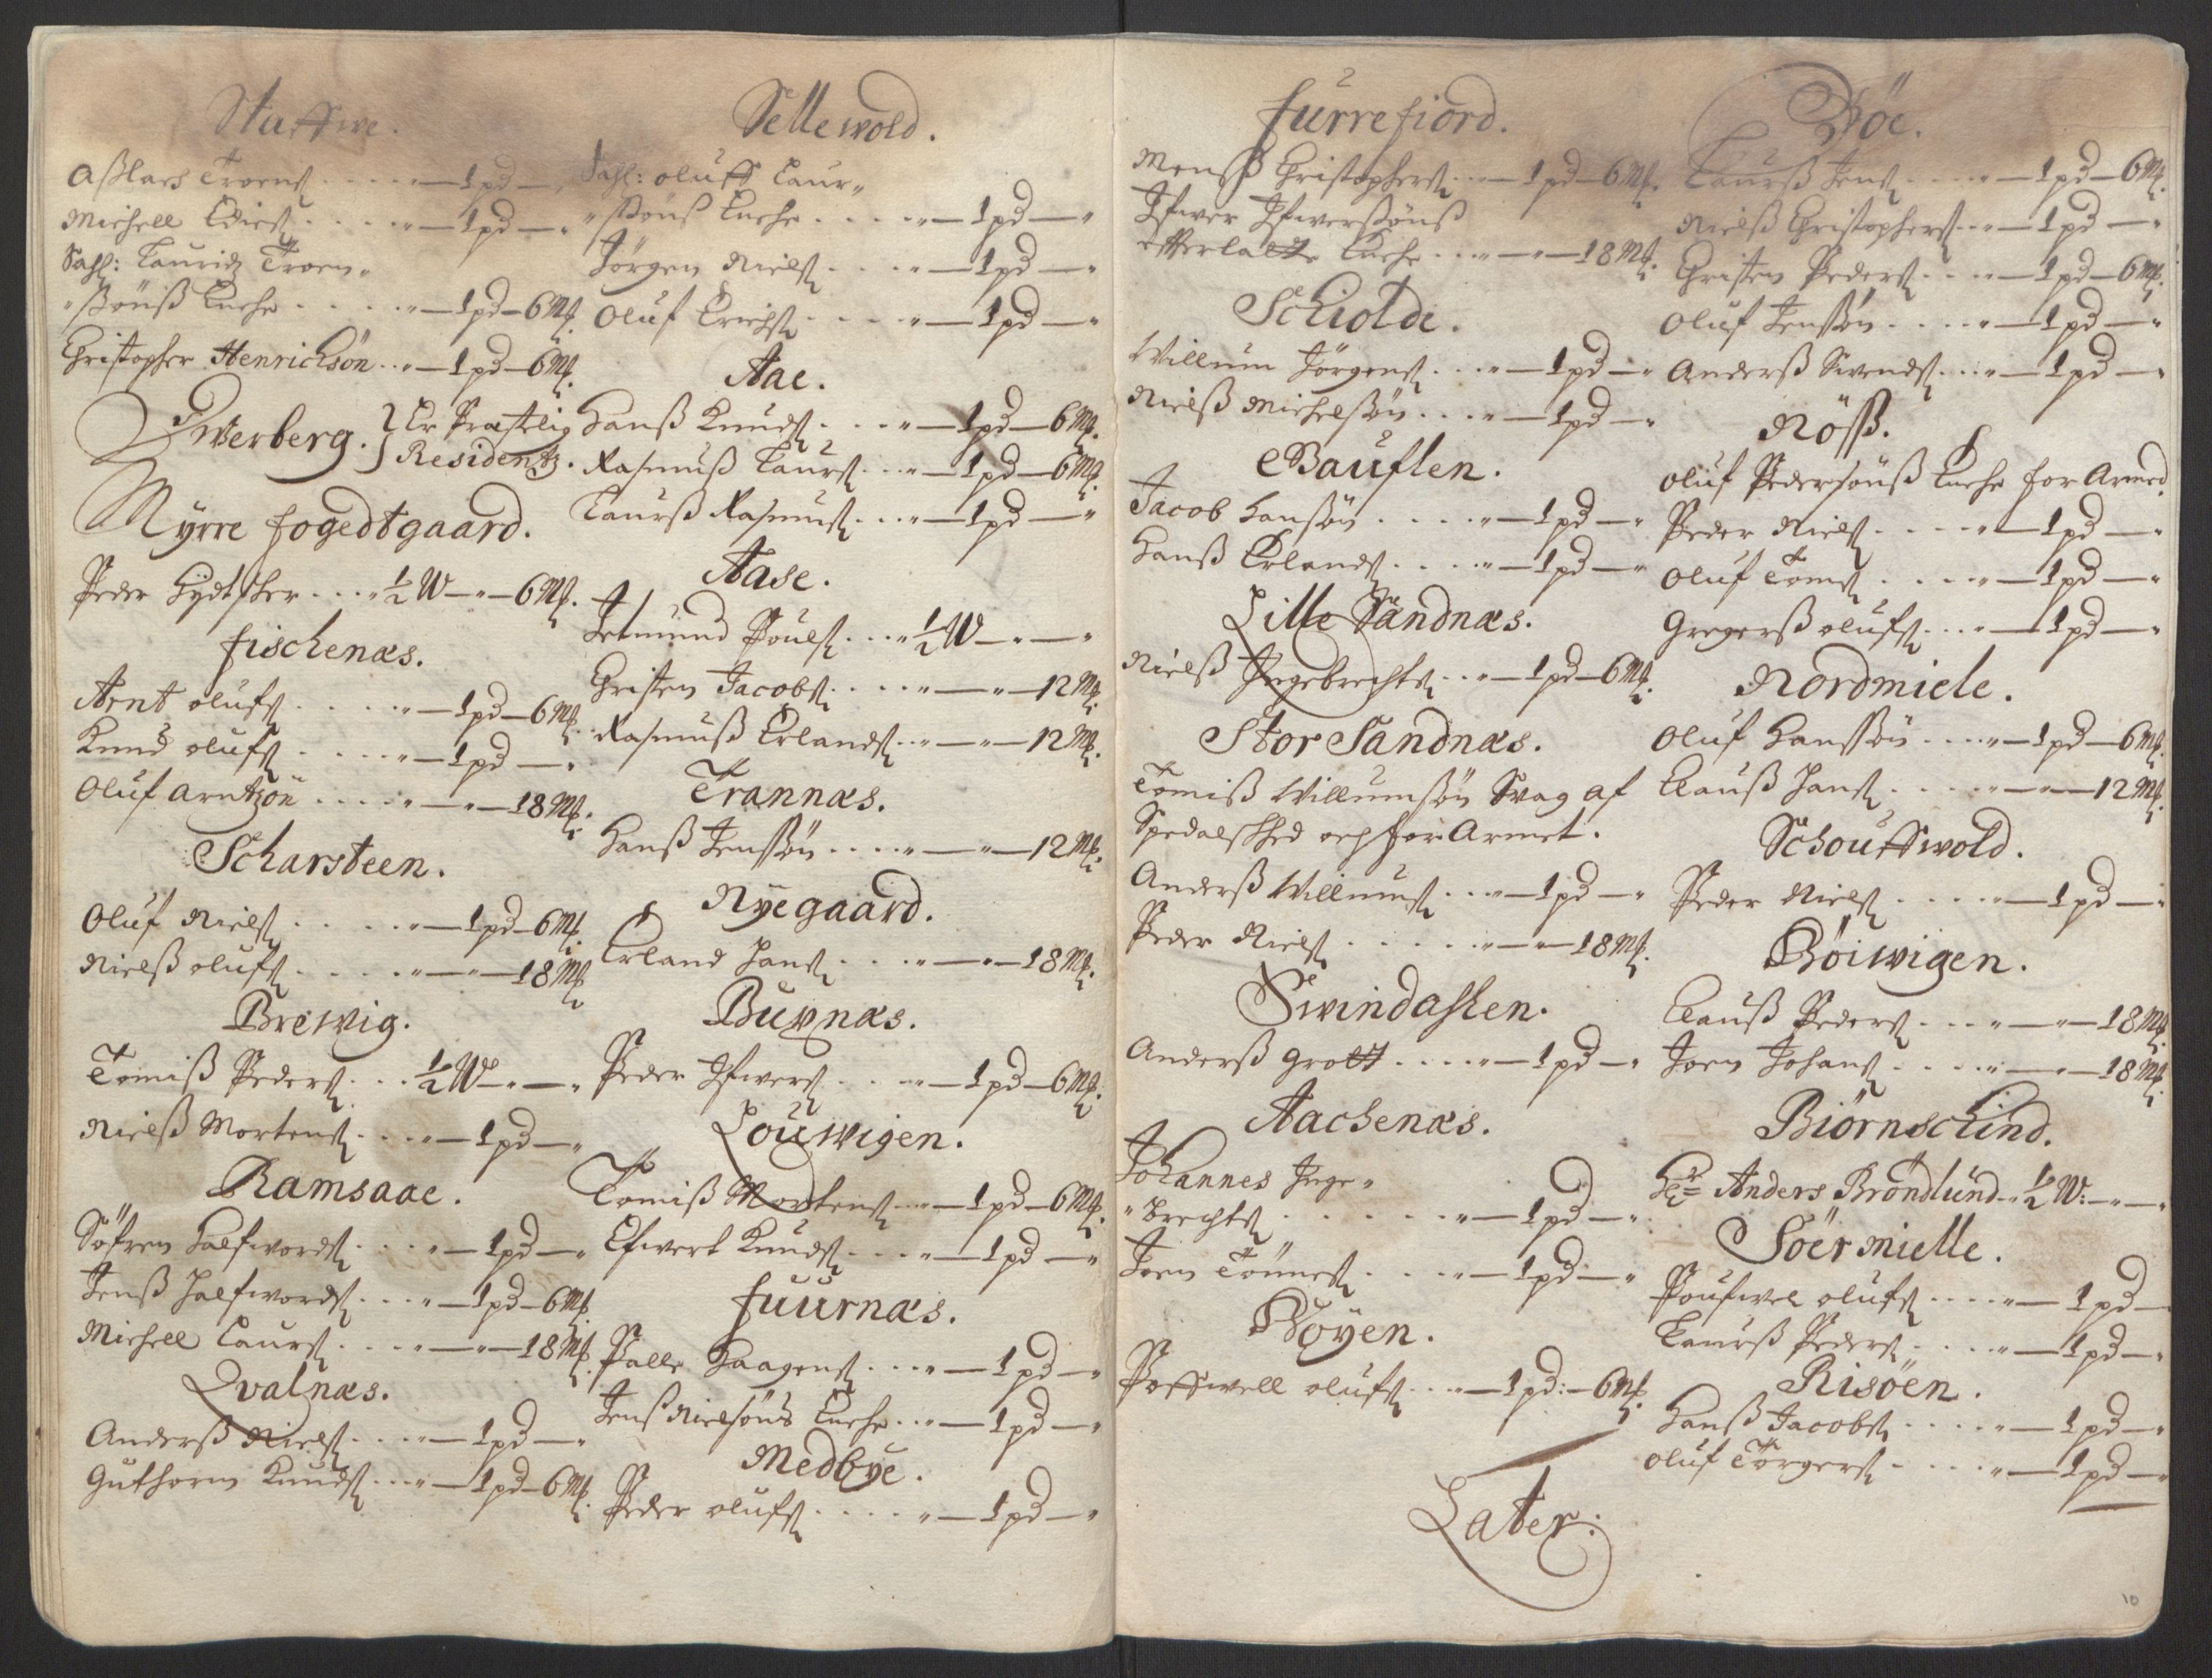 Staffwe.
Aßlach Troens. . . . . „—1 pd—„
Michell Edies. . . . . „—1 pd—„
Sahl: Lauridz Troen„
„ßönß Enche . . . . „—1 pd—6 Mk.
Christopher Henrichsön . . „—1 pd—6 Mk.
Dverberg. } Er Præstelig
Residentz.
Myrre fogedtgaard.
Peder Hydtscher . . . „ ½ W—„—6 Mk.
fischenæs.
Arnt olufs. . . . . „—1 pd—6 Mk.
Knud olufs. . . . . „—1 pd—„
Oluf Arntzön . . . . „—„—18 Mk.
Scharsteen.
Oluf Niels. . . . . „—1 pd—6 Mk.
Nielß olufs. . . . . „—„—18 Mk
Brewig.
Tomiß Peders. . . . ½ W—„—„
Nielß Mortens. . . . „—1 pd—„
Ramsaae.
Söfren Halfwords. . . . „—1 pd—„
Jenß Halfwords. . . . „—1 pd—6 Mk.
Michell Laurs. . . . . „—„—18 Mk.
Qvalnæs.
Anderß Niels. . . . „—1 pd—„
Guthorm Knuds. . . . „—1 pd—6 Mk.
Sellewold.
Sahl: oluff Laur„
„ßönß Enche . . . . . „—1 pd—„
Jörgen Niels. . . . . „—1 pd—„
Oluf Erichs. . . . . „—1 pd—„
Aae.
Hanß Knuds. . . . „—1 pd—6 Mk.
Rasmuß Laurs. . . . „—1 pd—6 Mk.
Laurß Rasmus. . . . „—1 pd—„
Aase.
Jetmund Pouls. . . . „ ½ W—„—„
Christen Jacobs. . . . . „—„—12 Mk.
Rasmuß Erlands. . . „—„—12 Mk.
Trannæs.
Hanß Jenssön . . . . „—„—12 Mk.
Nyegaard.
Erland Hans. . . . „—„—18 Mk.
Buxnæs.
Peder Ifwers. . . . „—1 pd—6 Mk.
Louwigen.
Tomiß Mortens. . . . „—1 pd—6 Mk.
Efwert Knuds. . . . „—1 pd—„
fuurnæs.
Palle Haagens. . . . „—1 pd—„
Jenß Nielsöns Enche . . . „—1 pd—„
Medbye.
Peder olufs. . . . . „—1 pd—„
furrefiord.
Monß Christophers. . . „—1 pd—6 Mk.
Ifwer Ifwerßönß
efterlatte Enche . . . „—„—18 Mk.
Schiolde.
Willum Jörgens. . . . „—1 pd—„
Nielß Michelsön . . . . „—1 pd—„
Bauflen.
Jacob Hansön . . . . „—1 pd—„
Hanß Erlands. . . . . „—1 pd—„
Lille Sandnæs.
Nielß Ingebrechts. . . „—1 pd—6 Mk.
Stor Sandnæs.
Tomiß Willumsön Svag af
Spedalskhed och forArmet.
Anderß Willums. . . . „—1 pd—„
Peder Niels. . . . . . „—„—18 Mk.
Swindaslen.
Anderß Grott . . . . . „—1 pd—„
Aachenæs.
Johannes Inge„
„brechts. . . . . . . „—1 pd—„
Joen Tönnes. . . . . „—1 pd—„
Böyen.
Poffwell olufs. . . . „—1 pd:—6 Mk.
Böe.
Laurß Jens. . . . . „—1 pd—6 Mk.
Nielß Christophers. . . „—1 pd—„
Christen Peders. . . . „—1 pd—6 Mk.
Oluf Jenssön . . . . „—1 pd—„
Anderß Swends. . . . „—1 pd—„
Röß.
oluf Pedersönß Enche for Armed.
Peder Niels. . . . . „—1 pd—„
Oluf Toms. . . . . „—1 pd—„
Gregerß olufs. . . . „—1 pd—„
Nordmiele.
Oluf Hanssön . . . . „—1 pd—6 Mk.
Clauß Hans. . . . . „—„—12 Mk.
Schouffwold.
Peder Niels. . . . . „—1 pd—„
Böiwigen.
Clauß Peders. . . . „—„—18 Mk.
Joen Johans. . . . . „—„—18 Mk.
Biörnschind.
Hr= Anders Bröndlund . „ ½ W:—„—„
Söermielle.
Poufwel olufs. . . . . „—1 pd—
Laurß Peders. . . . . „—1 pd—„
Risöen.
Hanß Jacobs. . . . . „—1 pd—„
oluf Törgers. . . . . „—1 pd—„
Later:
10